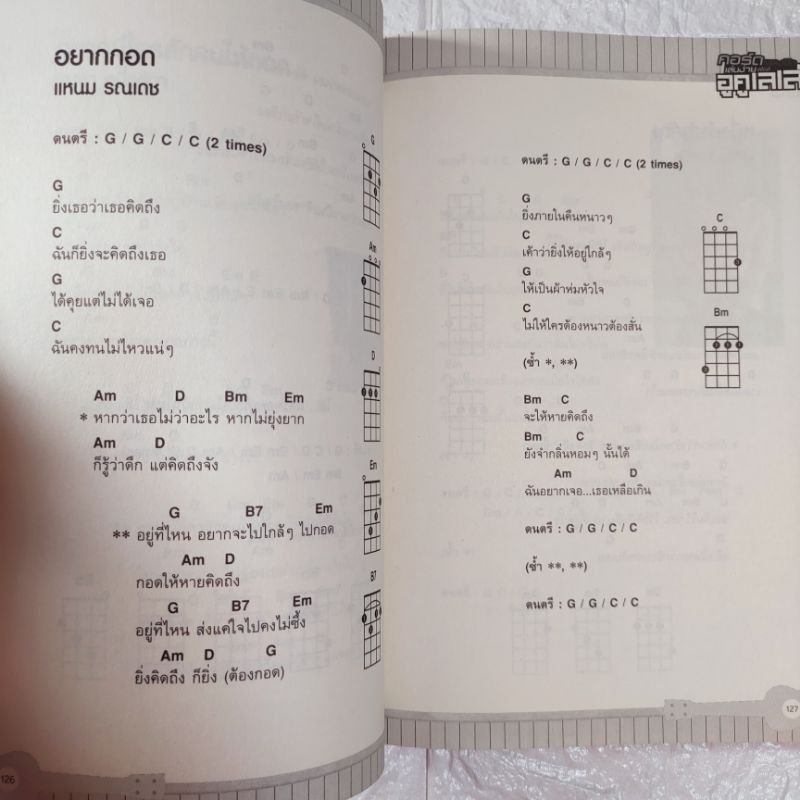 อยากกอด
แหนม รณเดช
ดนตรี : G / G / C / C (2 times)
G
ยิ่งเธอว่าเธอคิดถึง
C
ฉันก็ยิ่งจะคิดถึงเธอ
G
ได้คุยแต่ไม่ได้เจอ
C
ฉันคงทนไม่ไหวแน่ๆ
Am D Bm Em
* หากว่าเธอไม่ว่าอะไร หากไม่ยุ่งยาก
Am D
ก็รู้ว่าดึก แต่คิดถึงจัง
G B7 Em
** อยู่ที่ไหน อยากจะไปใกล้ๆ ไปกอด
Am D
กอดให้หายคิดถึง
G B7 Em
อยู่ที่ไหน ส่งแค่ใจไปคงไม่ซึ้ง
Am D G
ยิ่งคิดถึง ก็ยิ่ง (ต้องกอด)
G
Am
D
Em
B7
126
คอร์ด
อูคูเลเล่
ดนตรี : G / G / C / C (2 times)
G
ยิ่งภายในคืนหนาวๆ
C
เค้าว่ายิ่งให้อยู่ใกล้ๆ
G
ให้เป็นผ้าห่มหัวใจ
C
ไม่ให้ใครต้องหนาวต้องสั่น
(ซ้ำ *, **)
Bm C
จะให้หายคิดถึง
Bm C
ยังจำกลิ่นหอมๆ นั้นได้
Am D
ฉันอยากเจอ...เธอเหลือเกิน
ดนตรี : G / G / C / C
(ซ้ำ **, **)
ดนตรี : G / G / C / C
C
Bm
127